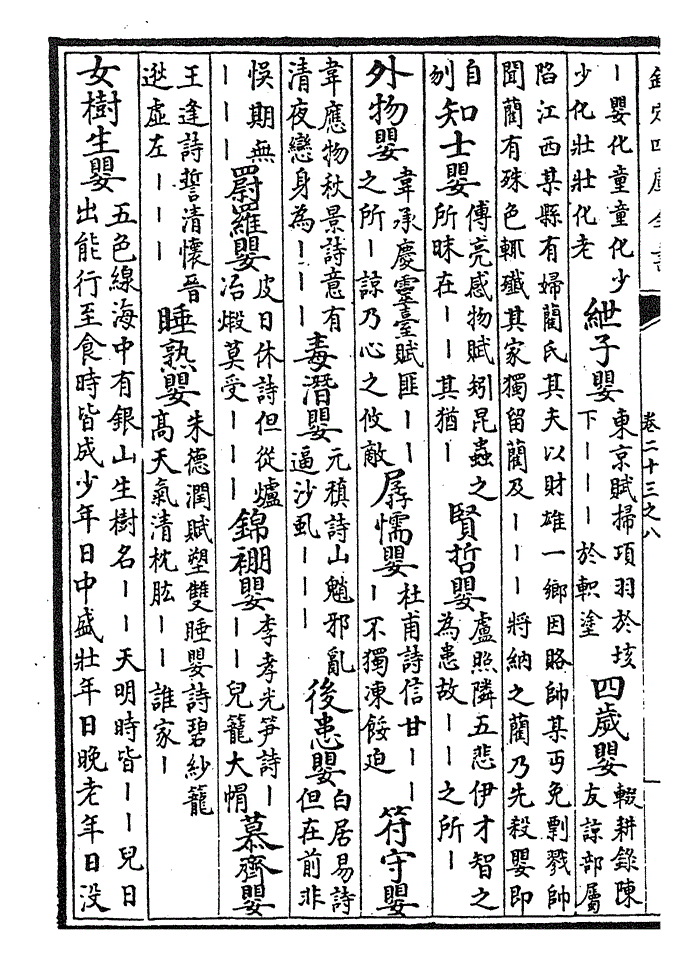 欽定四庫全書 卷二十三之八
｜嬰化童童化少少化壯壯化老 紲子嬰 東京賦掃項羽於垓下｜｜｜於軹塗 四歲嬰 輟耕錄陳友諒部屬
陷江西某縣有婦藺氏其夫以財雄一鄉因賂帥某丐免剽戮帥聞藺有殊色輒殲其家獨留藺及｜｜｜將納之藺乃先殺嬰即
自刎 知士嬰 傅亮感物賦矧昆蟲之所昧在｜｜其猶｜ 賢哲嬰 盧照隣五悲伊才智之為患故｜｜之所｜
外物嬰 韋承慶靈臺賦匪｜｜之所｜諒乃心之攸敵 孱懦嬰 杜甫詩信甘｜｜｜不獨凍餒迫 符守嬰
韋應物秋景詩意有清夜戀身為｜｜｜ 毒潛嬰 元稹詩山魈邪亂逼沙虱｜｜｜ 後患嬰 白居易詩但在前非
悞期無｜｜｜ 罻羅嬰 皮日休詩但從爐冶煅莫受｜｜｜ 錦棚嬰 李孝光笋詩｜｜｜兒籠大帽 慕齊嬰
王逢詩誓清懷晉逖虛左｜｜｜ 睡熟嬰 朱德潤賦塑雙睡嬰詩碧紗籠高天氣清枕肱｜｜誰家｜
女樹生嬰 五色線海中有銀山生樹名｜｜天明時皆｜｜兒日出能行至食時皆成少年日中盛壯年日晚老年日没